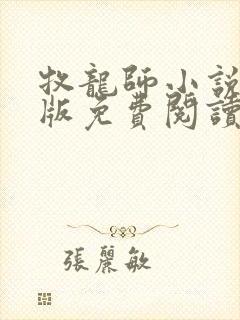 牧龍師小說
版免費閱讀
張麗敏